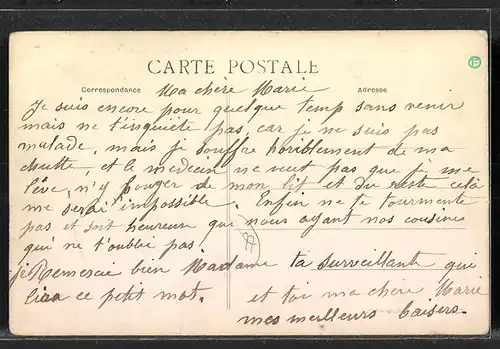 CARTE POSTALE
Correspondance
Adresse
Ma chère Marie
Je suis encore pour quelque temp sans venir
mais ne t'inquiète pas, car je ne suis pas
malade, mais je souffre horriblement de ma
chutte, et le medecin ne veut pas que je me
lêve, n'y bouger de mon lit et du reste celà
me serai l'impossible. Enfin ne te tourmente
pas et soit heureuse qui nous ayant nos cousines
qui ne t'oublie pas.
je Remercie bien Madame ta surveillante qui
lira ce petit mot.
et toi ma chère Marie
mes meilleurs baisers.